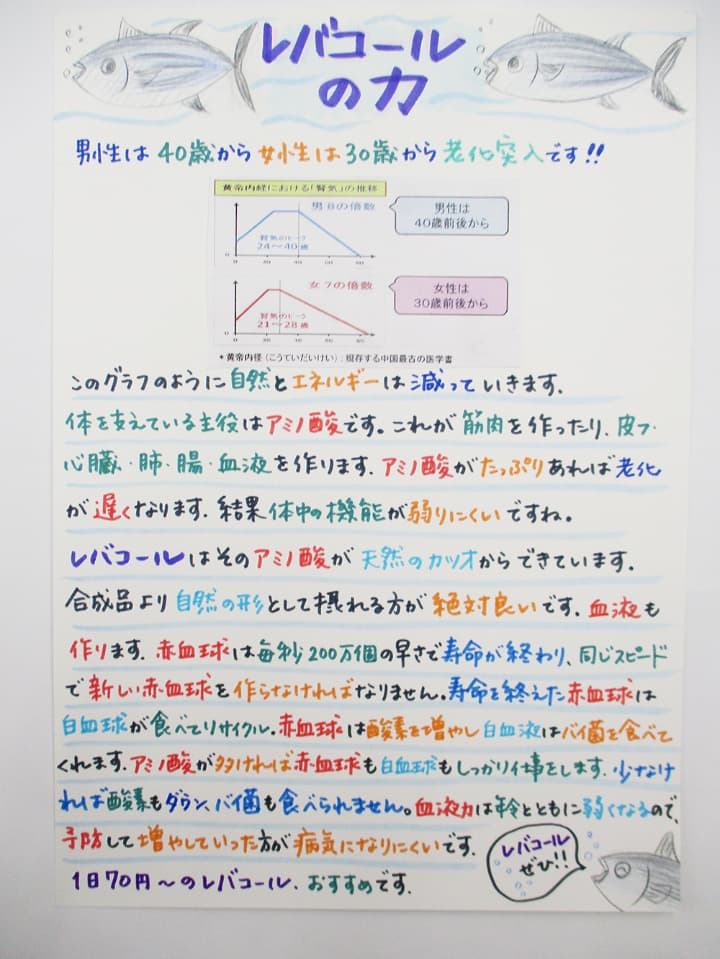 レバコール
の力
男性は40歳から女性は30歳から老化突入です!!
黄帝内経における「腎気」の推移
男8の倍数
男性は
40歳前後から
腎気のピーク
24～40歳
0
0 20 40 60 80
女7の倍数
女性は
30歳前後から
腎気のピーク
21～28歳
0
＊黄帝内径（こうていだいけい）：現存する中国最古の医学書
このグラフのように自然とエネルギーは減っていきます。
体を支えている主役はアミノ酸です。これが筋肉を作ったり、皮フ・
心臓・肺・腸・血液を作ります。アミノ酸がたっぷりあれば老化
が遅くなります。結果体中の機能が弱りにくいですね。
レバコールはそのアミノ酸が天然のカツオからできています。
合成品より自然の形として摂れる方が絶対良いです。血液も
作ります。赤血球は毎秒200万個の早さで寿命が終わり、同じスピード
で新しい赤血球を作らなければなりません。寿命を終えた赤血球は
白血球が食べてリサイクル。赤血球は酸素を増やし白血液はバイ菌を食べて
くれます。アミノ酸が多ければ赤血球も白血球もしっかり仕事をします。少なけ
れば酸素もダウン、バイ菌も食べられません。血液力は年令とともに弱くなるので、
予防して増やしていった方が病気になりにくいです。
1日70円～のレバコール、おすすめです。
レバコール
ぜひ!!